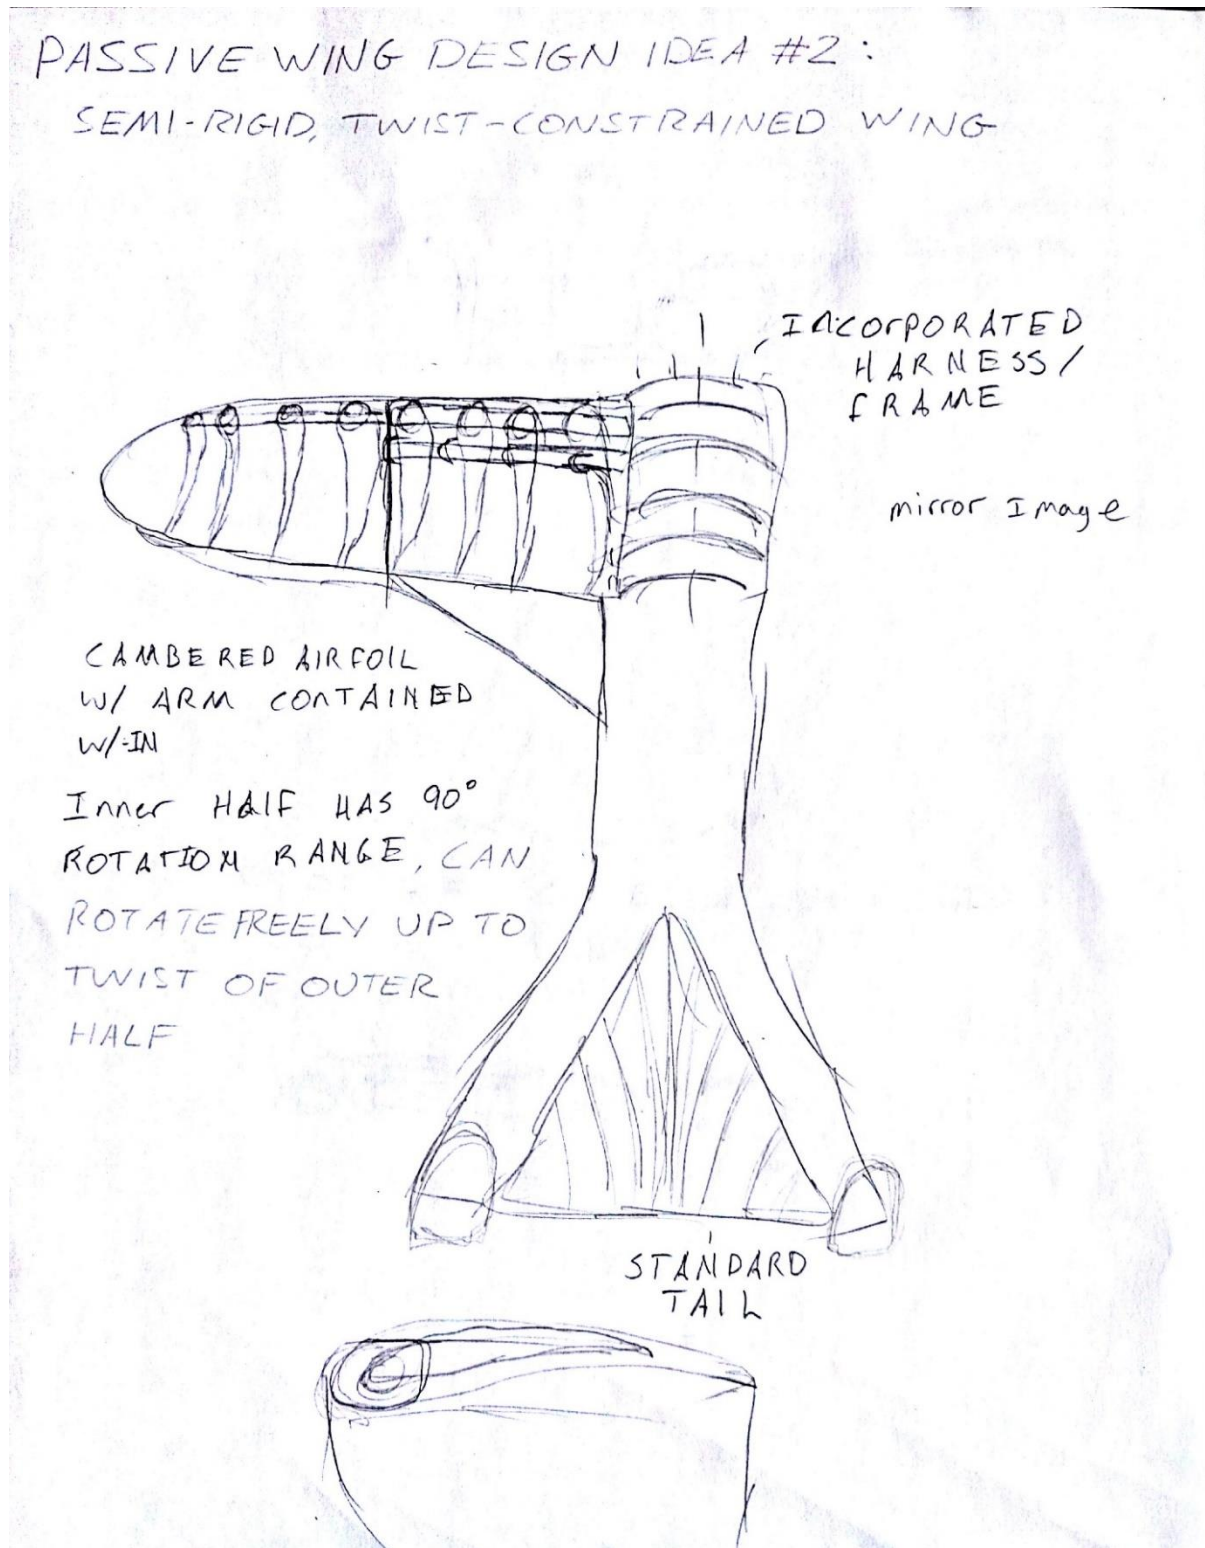 PASSIVE WING DESIGN IDEA #2:
SEMI-RIGID, TWIST-CONSTRAINED WING
INCORPORATED
HARNESS/
FRAME
mirror Image
CAMBERED AIRFOIL
W/ ARM CONTAINED
W/-IN
Inner HALF HAS 90°
ROTATION RANGE, CAN
ROTATE FREELY UP TO
TWIST OF OUTER
HALF
STANDARD
TAIL